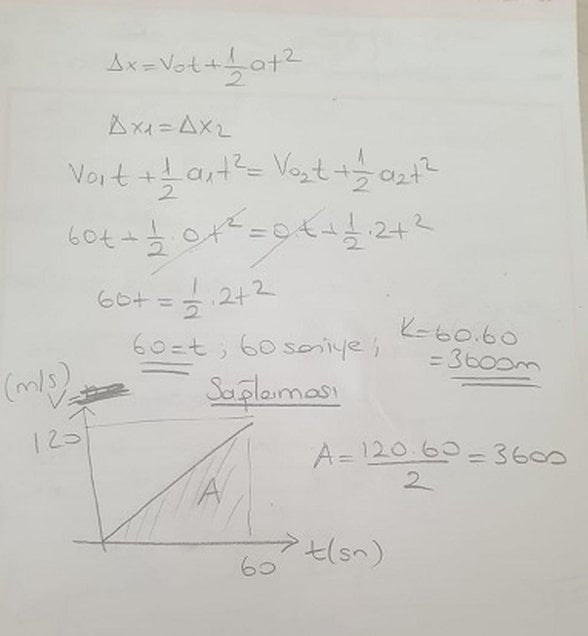 Δx=V₀t+1/2 at²
Δx₁=Δx₂
V₀₁t+1/2 a₁t²=V₀₂t+1/2 a₂t²
60t+1/2.0t²=0.t+1/2.2t²
60t=1/2.2t²
60=t; 60 saniye;
K=60.60
=3600m
Sağlaması
(m/s)
V
120
A
60
t(sn)
A=120.60/2=3600